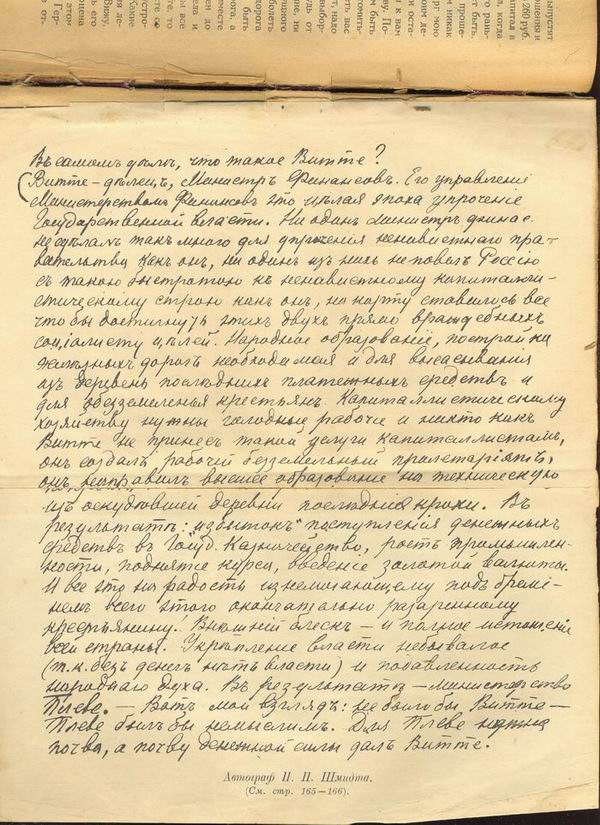 Въ самомъ дѣлѣ, что такое Витте?
Витте – дѣлецъ, Министръ Финансовъ. Его управленіе
Министерствомъ Финансовъ это цѣлая эпоха упроченіе
Государственной власти. Ни одинъ министръ финанс.
не сдѣлалъ такъ много для упроченія ненавистнаго пра-
вительства какъ онъ, ни одинъ изъ нихъ не повелъ Россію
съ такою быстротою къ ненавистному капитали-
стическому строю какъ онъ, на карту ставилось все
чтобы достигнуть этихъ двухъ прямо враждебныхъ
соціалисту цѣлей. Народное образованіе, постройка
желѣзныхъ дорогъ необходимая и для высасыванія
изъ деревень послѣднихъ платежныхъ средствъ и
для обезземеленья крестьянъ. Капиталлистическому
хозяйству нужны голодные рабочіе и никто какъ
Витте не принесъ такой услуги капиталлистамъ,
онъ создалъ рабочій безземельный пролетаріатъ,
онъ направилъ высшее образованіе на техническую
изъ оскудѣвшей деревни послѣднія крохи. Въ
результатѣ: „избытокъ“ поступленія денежныхъ
средствъ въ Госуд. Казначейство, ростъ промышлен-
ности, поднятіе курса, введеніе золотой валюты.
И все это на радость изнемогающему подъ бреме-
немъ всего этого окончательно разоренному
крестьянину. Внѣшній блескъ – и полное истощеніе
всей страны. Укрѣпленіе власти небывалое
(т.к. безъ денегъ нѣтъ власти) и подавленность
народнаго духа. Въ результатѣ – министерство
Плеве. – Вотъ мой взглядъ: не было бы Витте –
Плеве былъ бы немыслимъ. Для Плеве нужна
почва, а почву денежной силы далъ Витте.
Автографъ П. П. Шмидта.
(См. стр. 165–166).